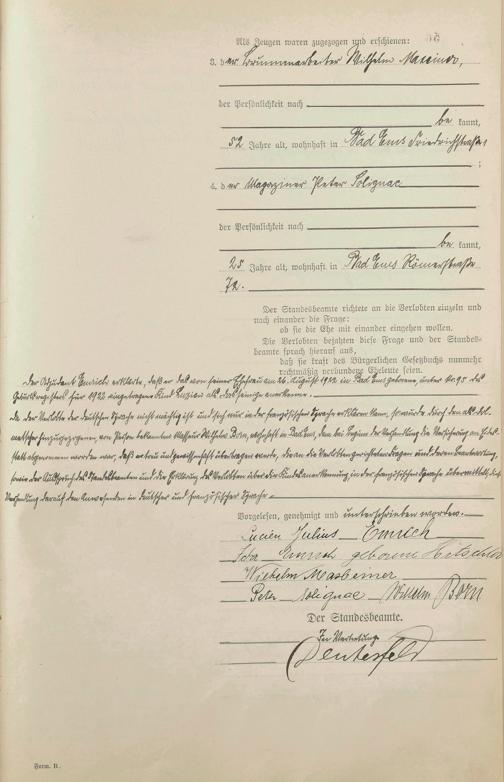 Als Zeugen waren zugezogen und erschienen:
3. der Brunnenarbeiter Wilhelm
der Persönlichkeit nach
be kannt,
52 Jahre alt, wohnhaft in Bad Ems Friedrichstraße
;
4. der Magaziner Peter Solignac
der Persönlichkeit nach
be kannt,
25 Jahre alt, wohnhaft in Bad Ems Römerstraße
72.
Der Standesbeamte richtete an die Verlobten einzeln und
nach einander die Frage:
ob sie die Ehe mit einander eingehen wollen.
Die Verlobten bejahten diese Frage und der Standes-
beamte sprach hierauf aus,
daß sie kraft des Bürgerlichen Gesetzbuchs nunmehr
rechtmäßig verbundene Eheleute seien.
Der Emrich erklärte, daß er das von seiner Ehefrau am 26. August 1922 in Bad Ems geborene, unter Nr. 95 des
Geburtsregisters für 1922 eingetragene Kind als das seinige anerkenne.
Da der Verlobte der deutschen Sprache nicht mächtig ist und sich nur in der französischer Sprache erklären kann, so wurde durch den als Dol-
metscher hinzugezogenen, von Person bekannten Wilhelm Born, wohnhaft in Bad Ems, dem bei Beginn der Verhandlung die Versicherung an Eides-
statt abgenommen worden war, daß er treu und gewissenhaft übertragen werde, die an die Verlobten gerichteten Fragen und deren Beantwortung,
sowie der Ausspruch des Standesbeamten und die Erklärung des Verlobten über die Kindesanerkennung in der französischen Sprache übermittelt, die
Verhandlung darauf den Anwesenden in deutscher und französischer Sprache
Vorgelesen, genehmigt und unterschrieben worden.
Lucien Julius Emrich
Emrich geborene
Wilhelm
Peter Solignac Wilhelm Born
Der Standesbeamte.
In Vertretung
Form. B.